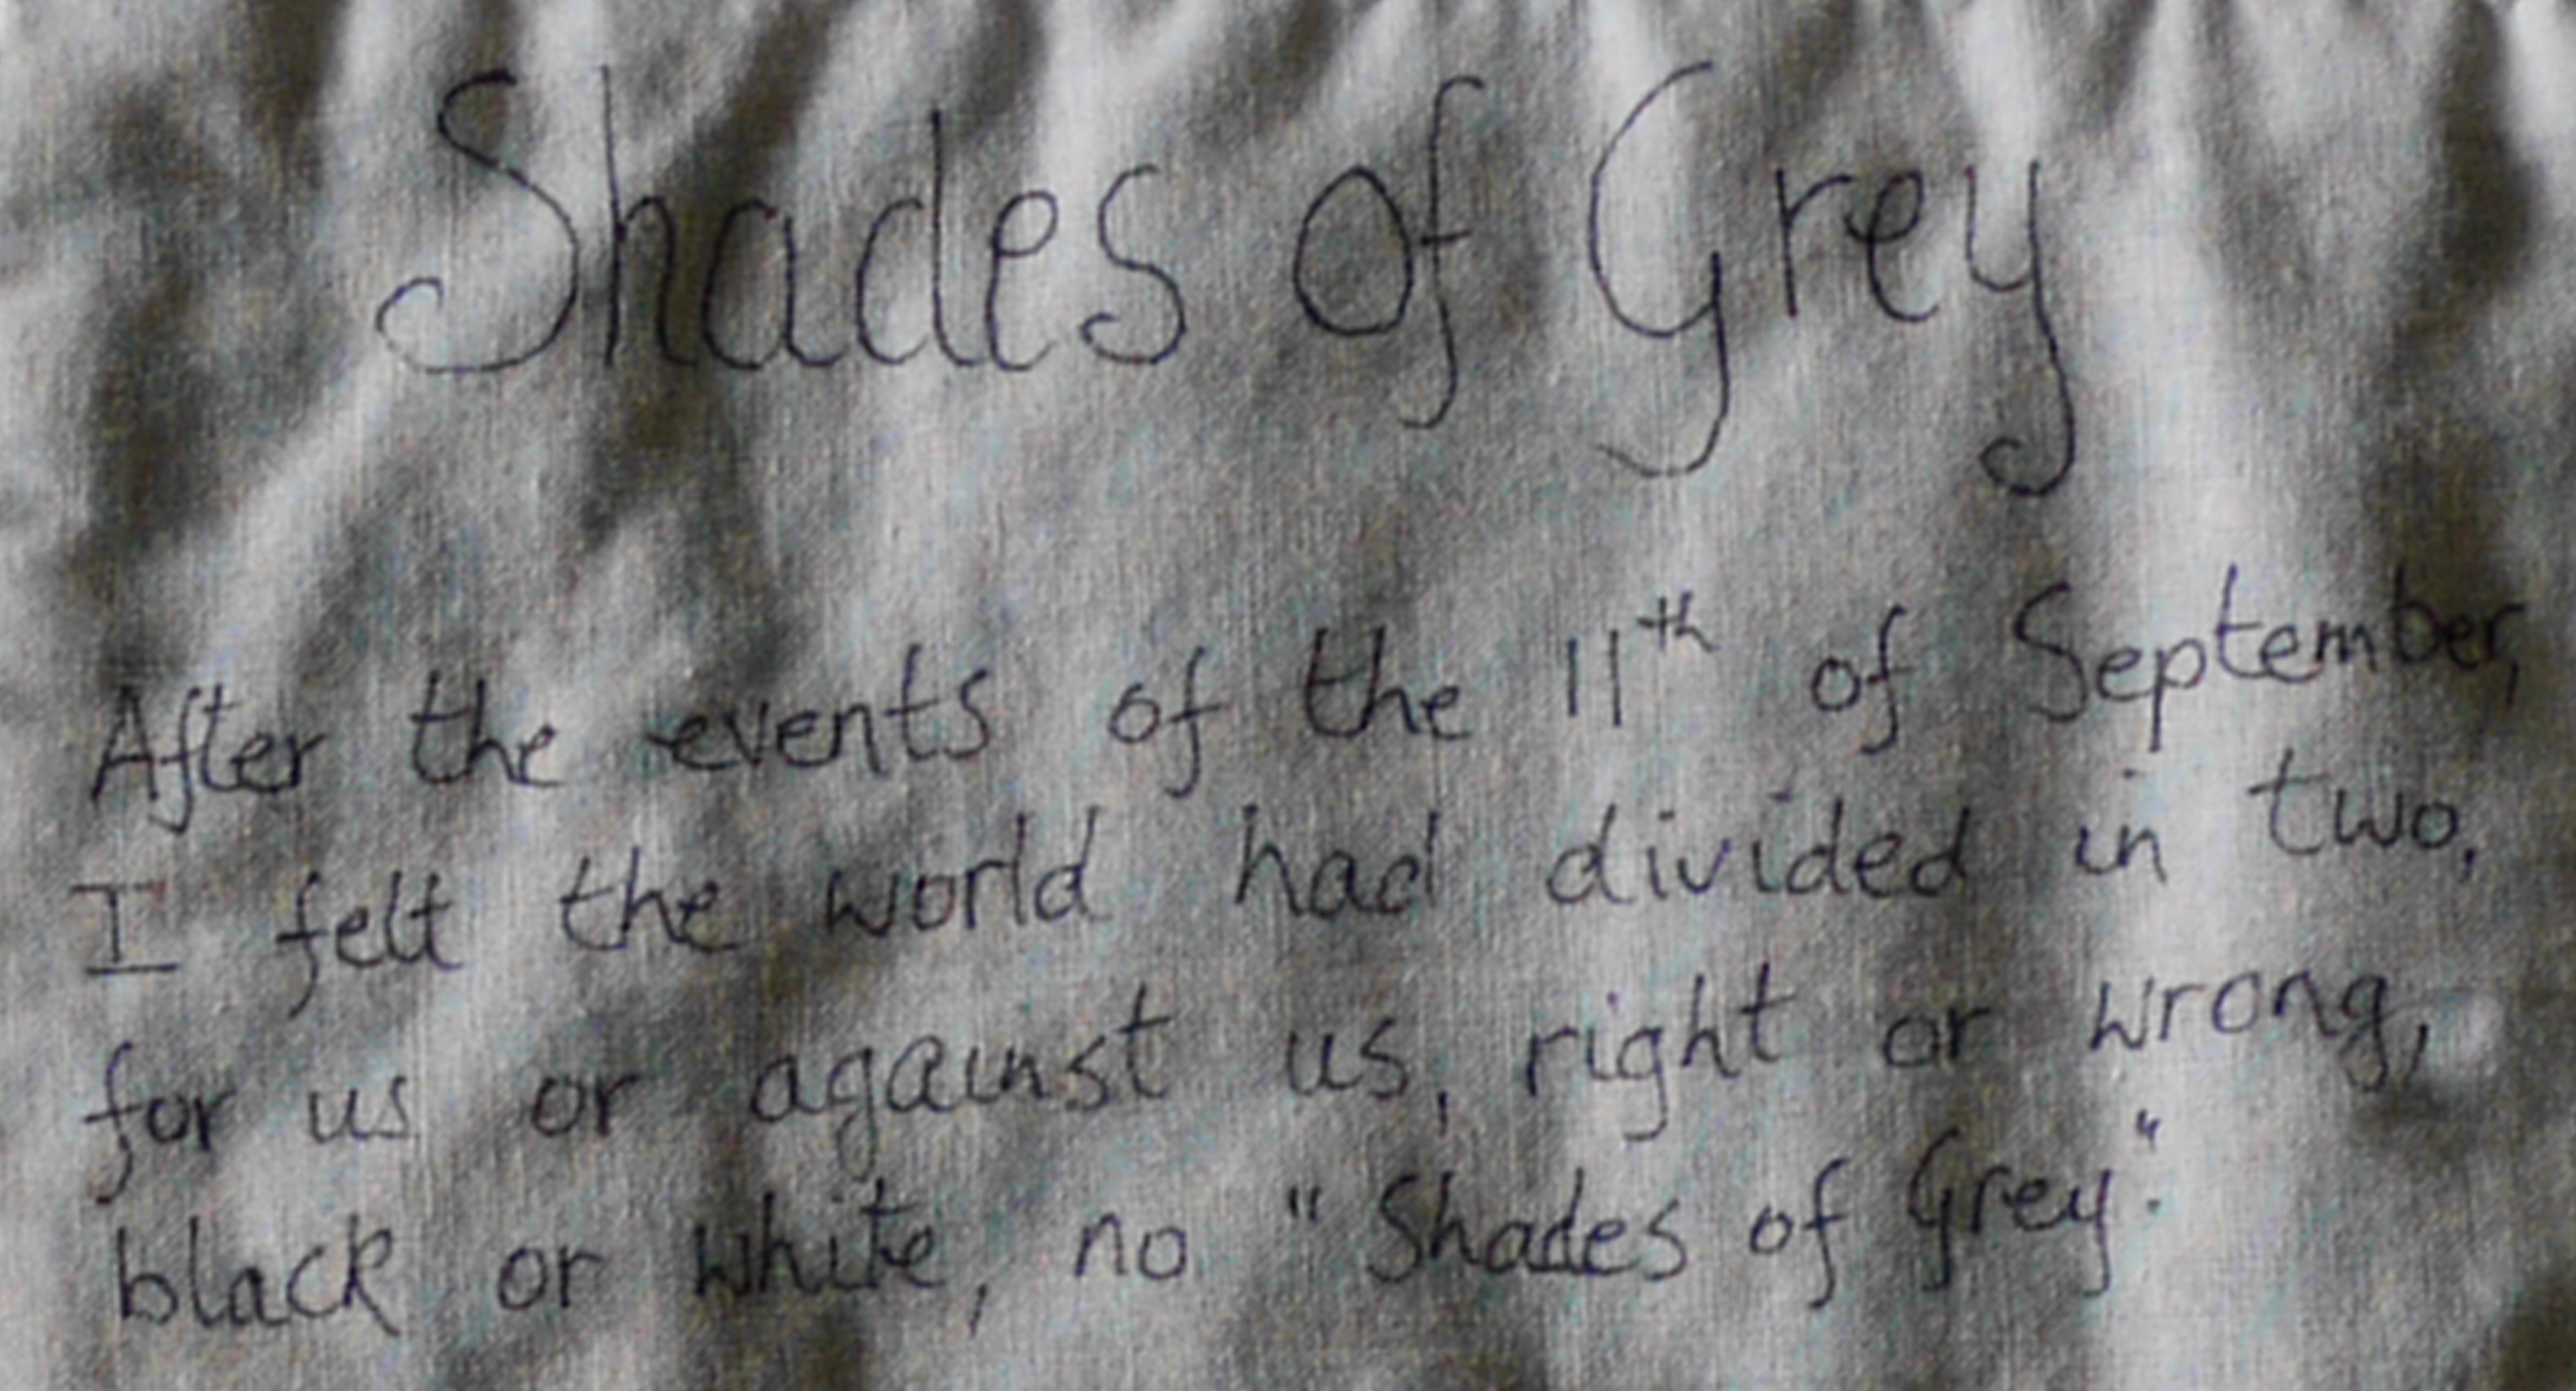 Shades of Grey
After the events of the 11th of September,
I felt the world had divided in two,
for us or against us, right or wrong,
black or white, no "Shades of Grey".